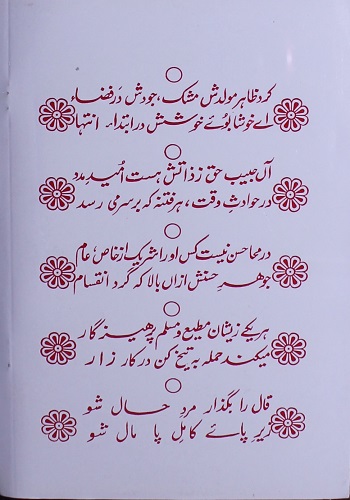 کرد ظاہر مولدش مشک، جودش در فضاء
اے خوشا بوئے خوشش در ابتدا، انتہا
آں حبیب حق ز ذاتش ہست اُمیدِ مدد
در حوادثِ وقت، ہر فتنہ کہ بر سر می رسد
در محاسن نیست کس او را شریک از خاص، عام
جوھرِ حسنش ازاں بالا کہ گرد انقسام
ہر یکے زیشاں مطیع و مسلم پرھیزگار
میکند حملہ بہ تیخ کن در کار زار
قال را بگذار مردِ حال شو
زیرِ پائے کامل پا مال شو